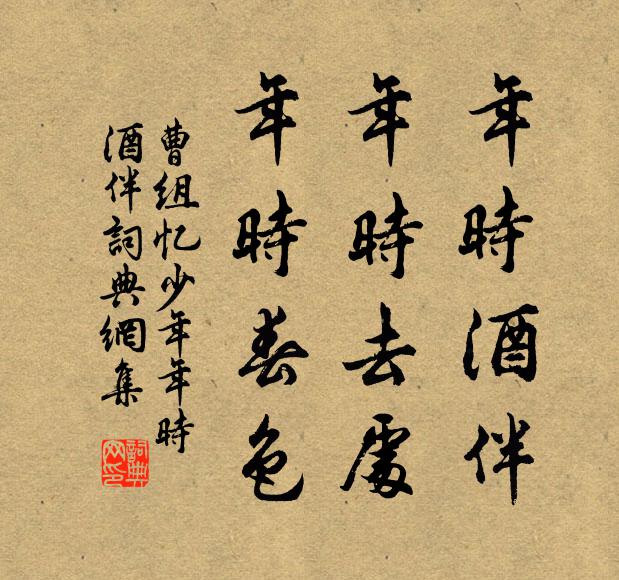 年時酒伴
年時去處
年時春色
曹组忆少年年時
酒伴詞典網集
詞典
网印